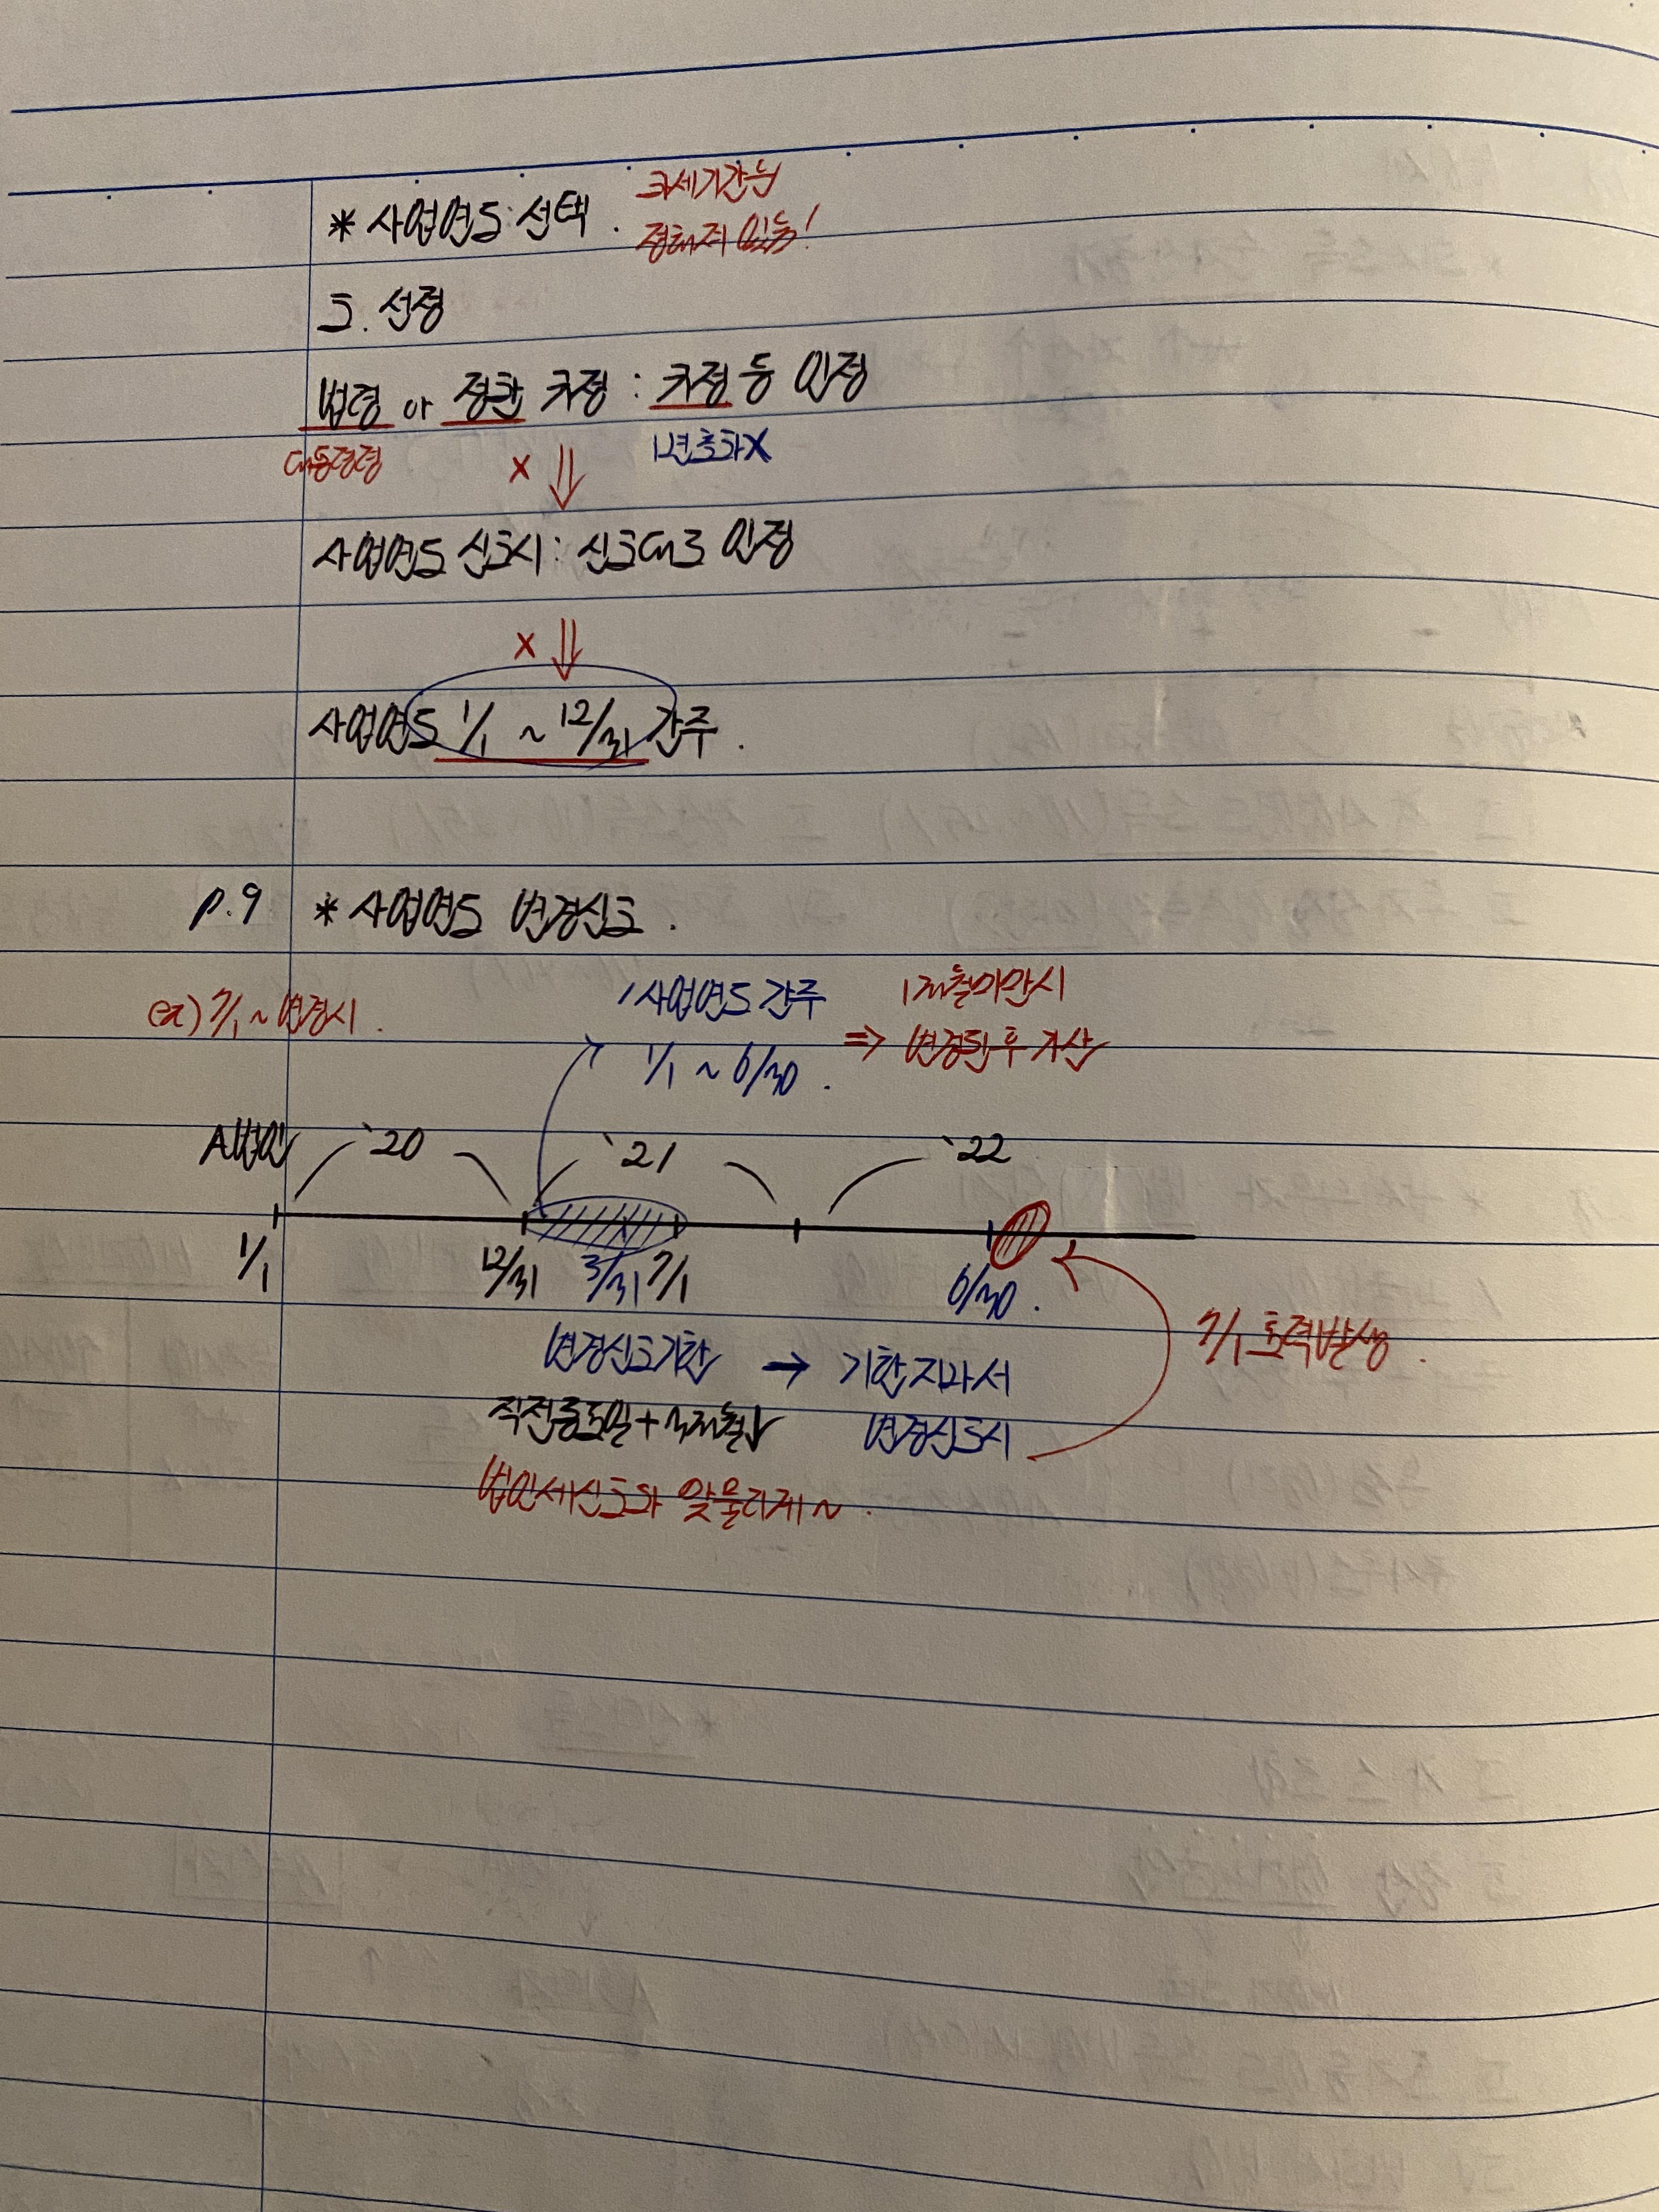 * 사업연도 선택.
과세기간는
정해져 있음!
그. 선정
법령 or 정관 규정 : 규정 등 인정
대통령령
1년초과X
X ⇓
사업연도 신고시 : 신고대로 인정
X ⇓
사업연도 1/1 ~ 12/31 간주.
p.9 * 사업연도 변경신고.
ex) 7/1 ~ 변경시.
1사업연도 간주
1/1 ~ 6/30.
1개월미만시
⇒ 변경된 후 가산
A법인 `20 `21 `22
1/1 12/31 3/31 7/1 6/30.
변경신고기한 → 기한 지나서
직전종료일+3개월 변경신고시
7/1 효력발생.
법인세신고와 맞물리게~.